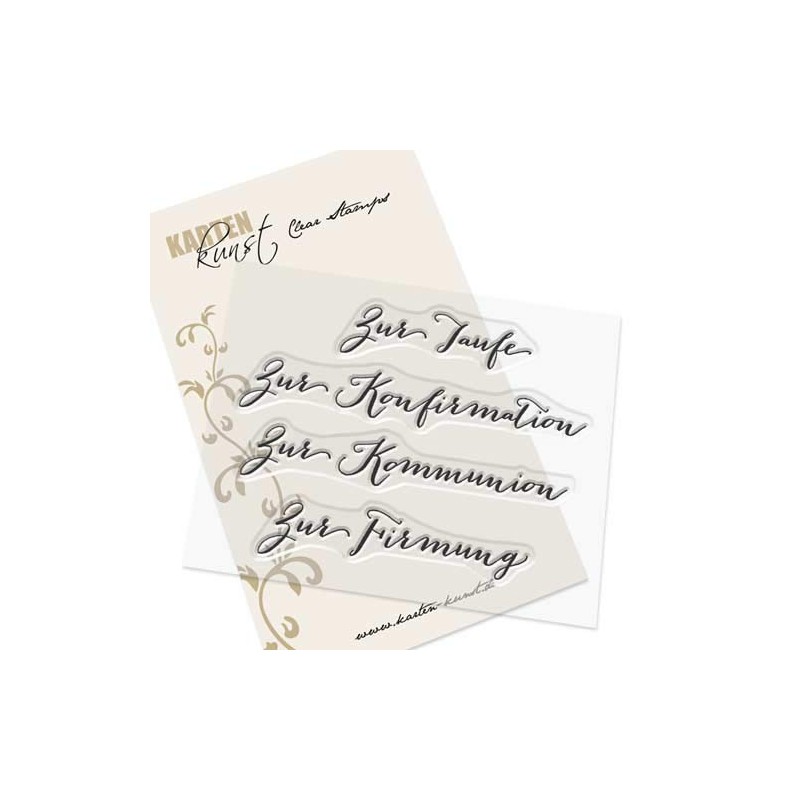 KARTEN kunst Clear Stamps
Zur Taufe
Zur Konfirmation
Zur Kommunion
Zur Firmung
www.karten-kunst.de